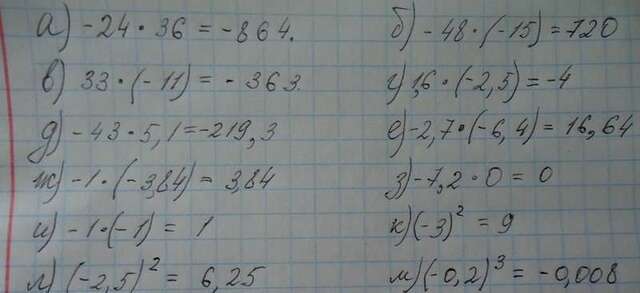 а) -24 · 36 = -864.
б) -48 · (-15) = 720
в) 33 · (-11) = -363
г) 1,6 · (-2,5) = -4
д) -43 · 5,1 = -219,3
е) -2,7 · (-6,4) = 16,64
ж) -1 · (-3,84) = 3,84
з) -7,2 · 0 = 0
и) -1 · (-1) = 1
к) (-3)² = 9
л) (-2,5)² = 6,25
м) (-0,2)³ = -0,008